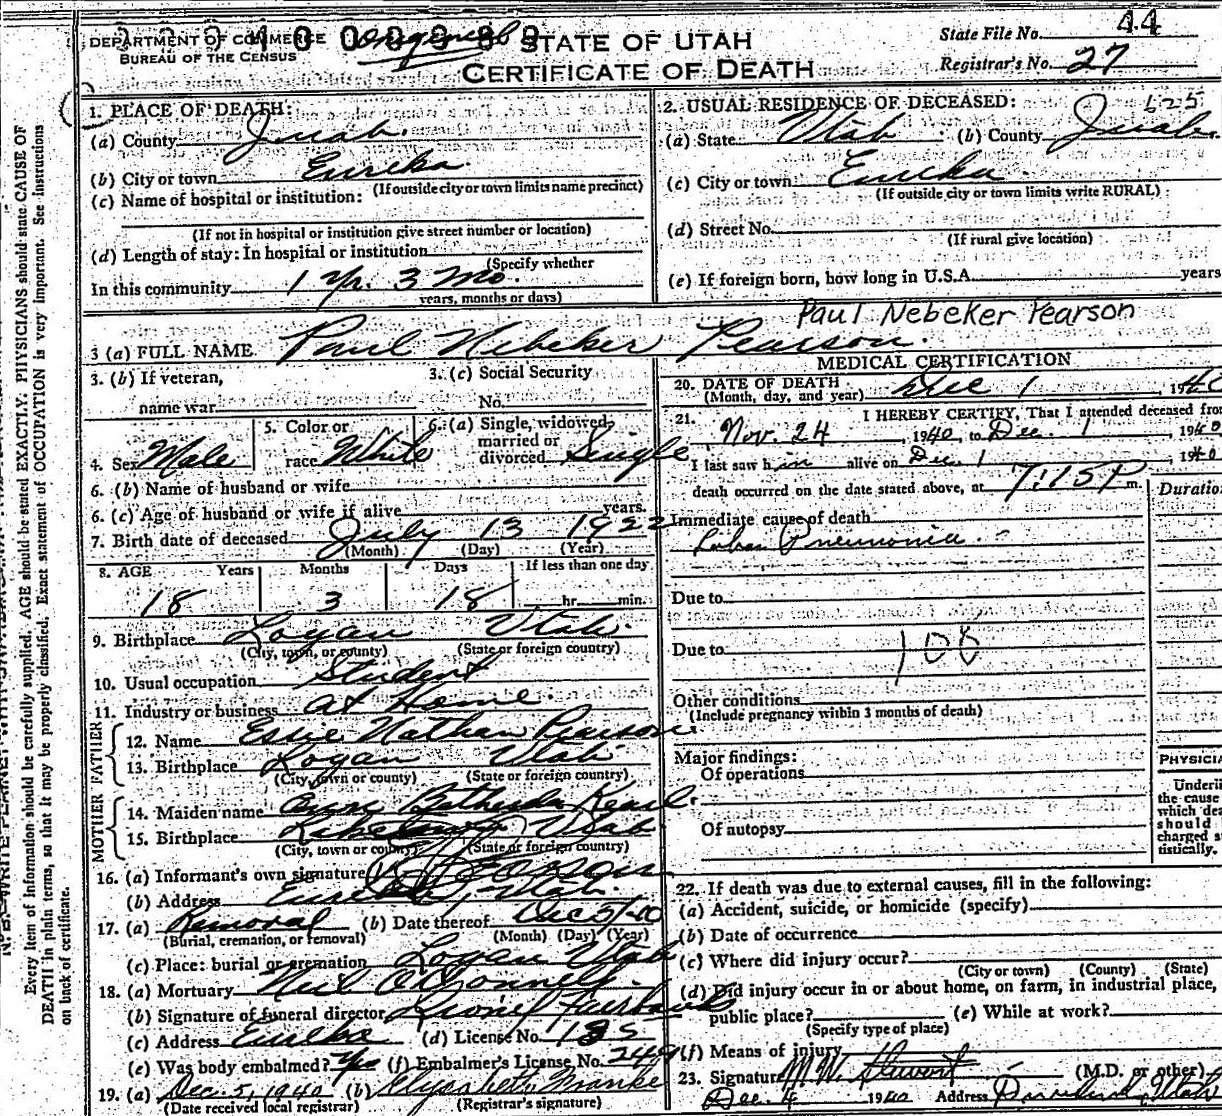 DEPARTMENT OF COMMERCE
BUREAU OF THE CENSUS
Original
STATE OF UTAH
CERTIFICATE OF DEATH
State File No. 44
Registrar's No. 27
1. PLACE OF DEATH:
(a) County Juab.
(b) City or town Eureka.
(If outside city or town limits name precinct)
(c) Name of hospital or institution:
(If not in hospital or institution give street number or location)
(d) Length of stay: In hospital or institution
(Specify whether
In this community 1 Yr. 3 Mo.
years, months or days)
2. USUAL RESIDENCE OF DECEASED: 625
(a) State Utah (b) County Juab.
(c) City or town: Eureka.
(If outside city or town limits write RURAL)
(d) Street No.
(If rural give location)
(e) If foreign born, how long in U.S.A. years
Paul Nebeker Pearson
3 (a) FULL NAME Paul Nebeker Pearson.
3. (b) If veteran,
name war
3. (c) Social Security
No.
4. Sex Male
5. Color or
race White
6. (a) Single, widowed,
married or
divorced Single
6. (b) Name of husband or wife
6. (c) Age of husband or wife if alive years.
7. Birth date of deceased July 13 1922
(Month) (Day) (Year)
8. AGE Years Months Days If less than one day
18 3 18 hr. min.
9. Birthplace Logan Utah.
(City, town, or county) (State or foreign country)
10. Usual occupation Student
11. Industry or business at Home.
FATHER
12. Name Essie Nathan Pearson
13. Birthplace Logan Utah
(City, town or county) (State or foreign country)
MOTHER
14. Maiden name Bethesda Kearl.
15. Birthplace Laketown Utah.
(City, town or county) (State or foreign country)
16. (a) Informant's own signature Pearson
(b) Address Eureka, Utah.
17. (a) Removal (b) Date thereof Dec 5/40
(Burial, cremation, or removal) (Month) (Day) (Year)
(c) Place: burial or cremation Logan Utah
18. (a) Mortuary Neil O'Donnell
(b) Signature of funeral director Lionel Fairbanks
(c) Address Eureka (d) License No.
(e) Was body embalmed? Yes (f) Embalmer's License No. 249
19. (a) Dec. 5, 1940 (b) Elysabeth Franke
(Date received local registrar) (Registrar's signature)
MEDICAL CERTIFICATION
20. DATE OF DEATH Dec 1, 1940
(Month, day, and year)
21. I HEREBY CERTIFY, That I attended deceased from
Nov. 24, 1940, to Dec. 1 1940
I last saw him alive on Dec. 1, 1940
death occurred on the date stated above, at 7:15P m.
Duration
Immediate cause of death
Lobar Pneumonia.
Due to
Due to 108
Other conditions
(Include pregnancy within 3 months of death)
Major findings:
Of operations
Of autopsy
PHYSICIA
Underli
the cause
which dea
should
charged s
tistically.
22. If death was due to external causes, fill in the following:
(a) Accident, suicide, or homicide (specify)
(b) Date of occurrence
(c) Where did injury occur?
(City or town) (County) (State)
(d) Did injury occur in or about home, on farm, in industrial place,
public place? (e) While at work?
(Specify type of place)
(f) Means of injury
23. Signature M.W. Stewart (M.D. or other)
Dec. 4 1940 Address Provo, Utah
Every item of information should be carefully supplied. AGE should be stated EXACTLY. PHYSICIANS should state CAUSE OF
DEATH in plain terms, so that it may be properly classified. Exact statement of OCCUPATION is very important. See instructions
on back of certificate.